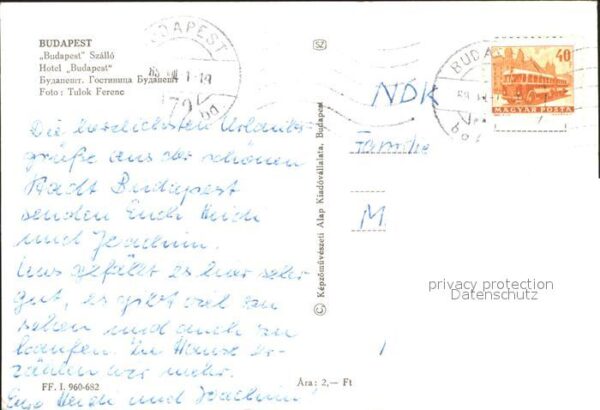 BUDAPEST
„Budapest" Szálló
Hotel „Budapest"
Будапешт. Гостиница Будапешт
Foto: Tulok Ferenc
Die herzlichsten Urlaubs-
grüße aus der schönen
Stadt Budapest
senden Euch Heidi
und Joachim.
Uns gefällt es hier sehr
gut, es gibt viel zu
sehen und auch zu
kaufen. Zu Hause er-
zählen wir mehr.
Eure Heidi und Joachim!
FF. I. 960-682
Ára: 2,— Ft
© Képzőművészeti Alap Kiadóvállalata, Budapest
BUDAPEST
BUDA
40
MAGYAR POSTA
NDK
Familie
M
privacy protection
Datenschutz